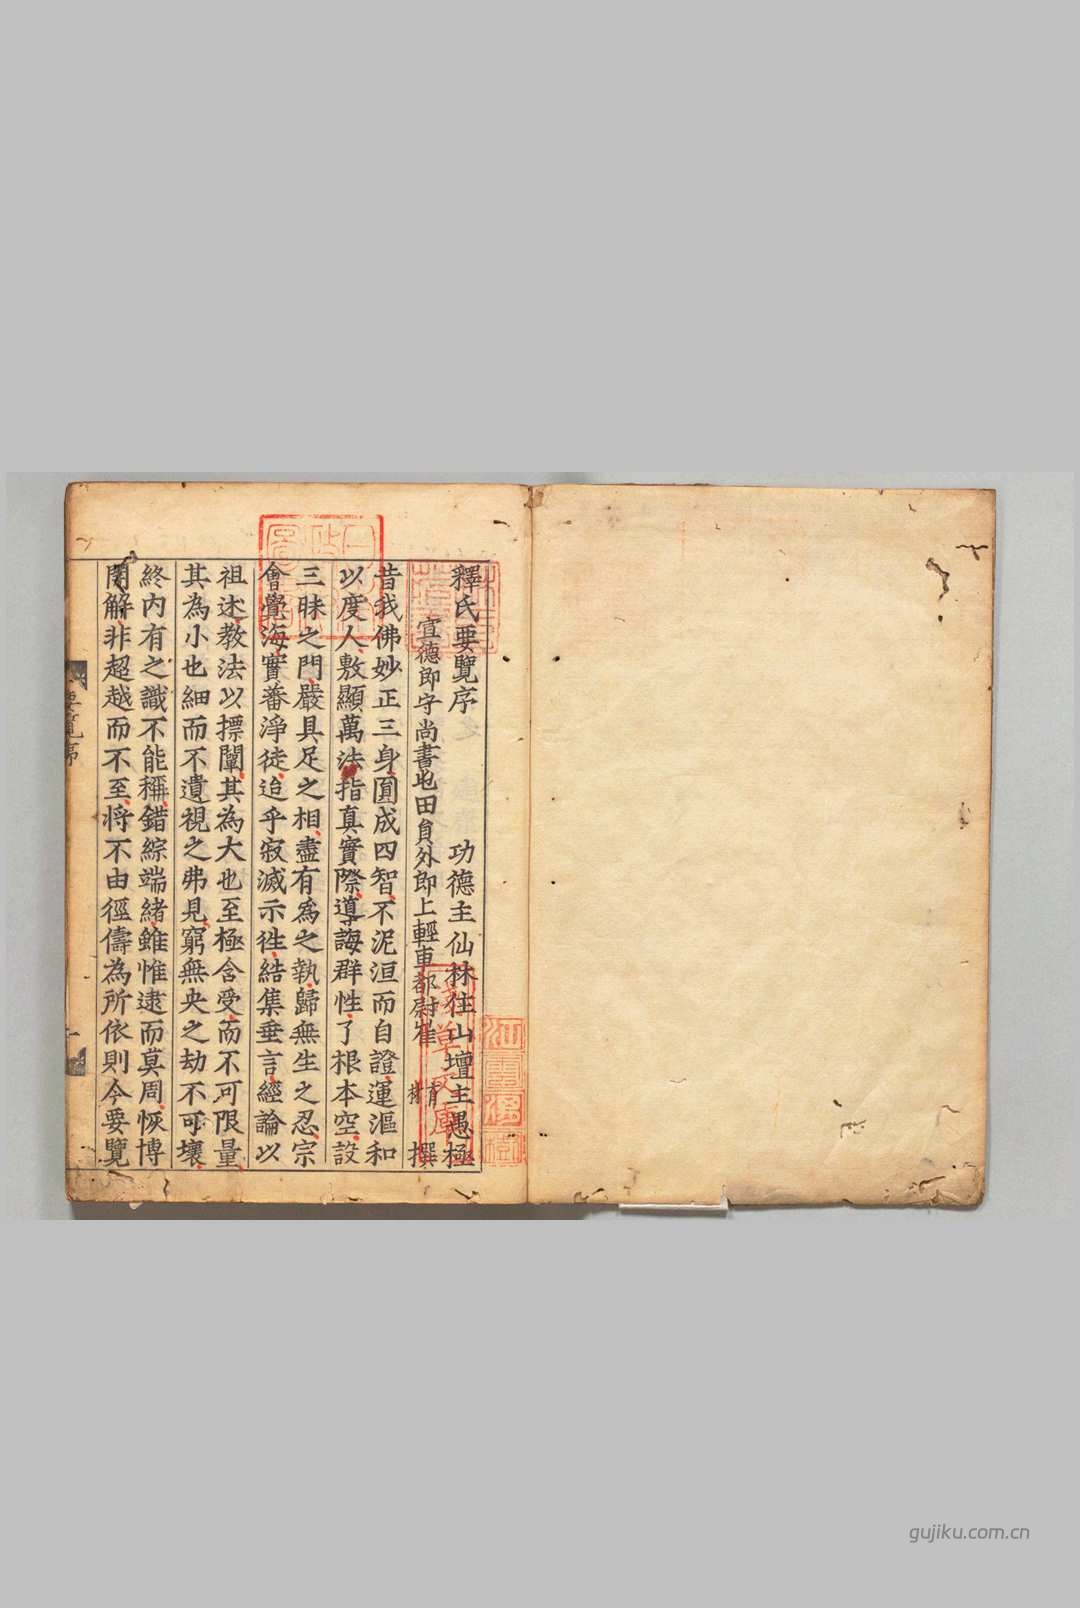 釋氏要覽序　功德主仙林住山壇主愚極
宣德郎守尚書屯田員外郎上輕車都尉崔育林撰
昔我佛妙正三身圓成四智不泥洹而自證運漚和
以度人敷顯萬法指真實際導誨群性了根本空設
三昧之門嚴具足之相盡有為之執歸無生之忍宗
會覺海實蕃淨徒迨乎寂滅示徃結集垂言經論以
祖述教法以摽闡其為大也至極含受而不可限量
其為小也細而不遺視之弗見窮無央之劫不可壞
終內有之識不能稱錯綜端緒雖惟逮而莫周恢博
開解非超越而不至將不由徑儔為所依則今要覽
要覽序
一
gujiku.com.cn